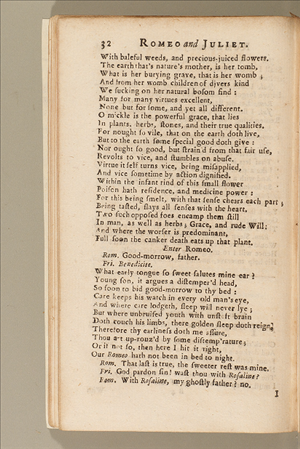 32 ROMEO and JULIET.
With baleful weeds, and precious-juiced flowers.
The earth that's nature's mother, is her tomb,
What is her burying grave, that is her womb;
And from her womb children of divers kind
We sucking on her natural bosom find:
Many for many virtues excellent,
None but for some, and yet all different.
O mickle is the powerful grace, that lies
In plants, herbs, stones, and their true qualities.
For nought so vile, that on the earth doth live,
But to the earth some special good doth give:
Nor ought so good, but strain'd from that fair use,
Revolts to vice, and stumbles on abuse.
Virtue it self turns vice, being misapplied,
And vice sometime by action dignified.
Within the infant rind of this small flower
Poison hath residence, and medicine power:
For this being smelt, with that sense chears each part;
Being tasted, slays all senses with the heart.
Two such opposed foes encamp them still
In man, as well as herbs, Grace, and rude Will;
And where the worser is predominant,
Full soon the canker death eats up that plant.
Enter Romeo.
Rom. Good-morrow, father.
Fri. Benedicite.
What early tongue so sweet salutes mine ear?
Young son, it argues a distemper'd head,
So soon to bid good-morrow to thy bed:
Care keeps his watch in every old man's eye,
And where care lodgeth, sleep will never lye;
But where unbruised youth with unstuft brain
Doth couch his limbs, there golden sleep doth reign;
Therefore thy earliness doth me assure,
Thou art up-rouz'd by some distemp'rature;
Or if not so, then here I hit it right,
Our Romeo hath not been in bed to night.
Rom. That last is true, the sweeter rest was mine.
Fri. God pardon sin! wast thou with Rosaline?
Rom. With Rosaline, my ghostly father? no,
I